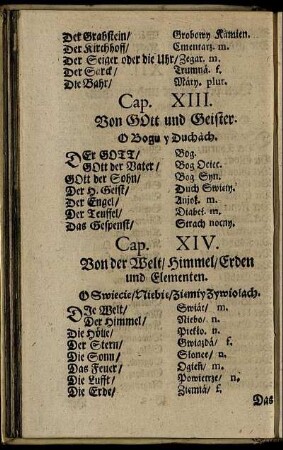 Der Grabstein/ Grobowy Kámien.
Der Kirchhoff/ Cmentarz. m.
Der Seiger oder die Uhr/ Zegar. m.
Der Sarck/ Trumná. f.
Die Bahr/ Máry. plur.
Cap. XIII.
Von GOtt und Geister.
O Bogu y Duchách.
DEr GOTT/ Bog.
GOtt der Vater/ Bog Ociec.
GOtt der Sohn/ Bog Syn.
Der H. Geist/ Duch Swięty.
Der Engel/ Anjoł. m.
Der Teuffel/ Diabeł. m.
Das Gespenst/ Strach nocny.
Cap. XIV.
Von der Welt/ Himmel/ Erden
und Elementen.
O Swiecie/ Niebie/ Ziemi y Zywiołach.
DIe Welt/ Swiát/ m.
Der Himmel/ Niebo/ n.
Die Hölle/ Piekło. n.
Der Stern/ Gwiazdá/ f.
Die Sonn/ Słonce/ n.
Das Feuer/ Ogień/ m.
Die Lufft/ Powietrze/ n.
Die Erde/ Ziemiá/ f.
Das